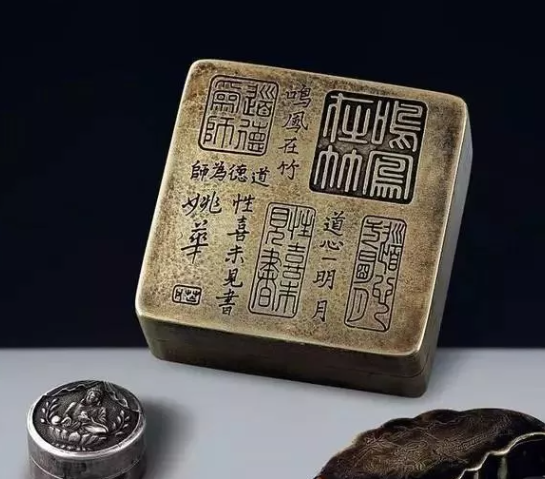 鳴鳳在竹
鳴鳳在竹
道心一明月
道心一明月
道德為師
道德為師
性喜未見書
性喜未見書
姚華